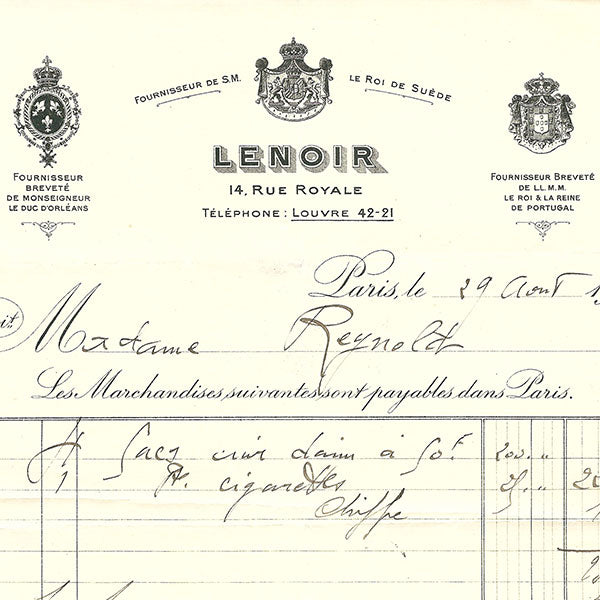 FOURNISSEUR DE S.M. LE ROI DE SUÈDE
LENOIR
14, RUE ROYALE
TÉLÉPHONE : LOUVRE 42-21
FOURNISSEUR
BREVETÉ
DE MONSEIGNEUR
LE DUC D'ORLÉANS
FOURNISSEUR BREVETÉ
DE LL. M.M.
LE ROI & LA REINE
DE PORTUGAL
Paris, le 29 Aout 1
Doit
Madame Reynold
Les Marchandises suivantes sont payables dans Paris.
4 Sacs cuir daim à 50f. 200. "
1 P. cigarettes 25. "
Chiffre